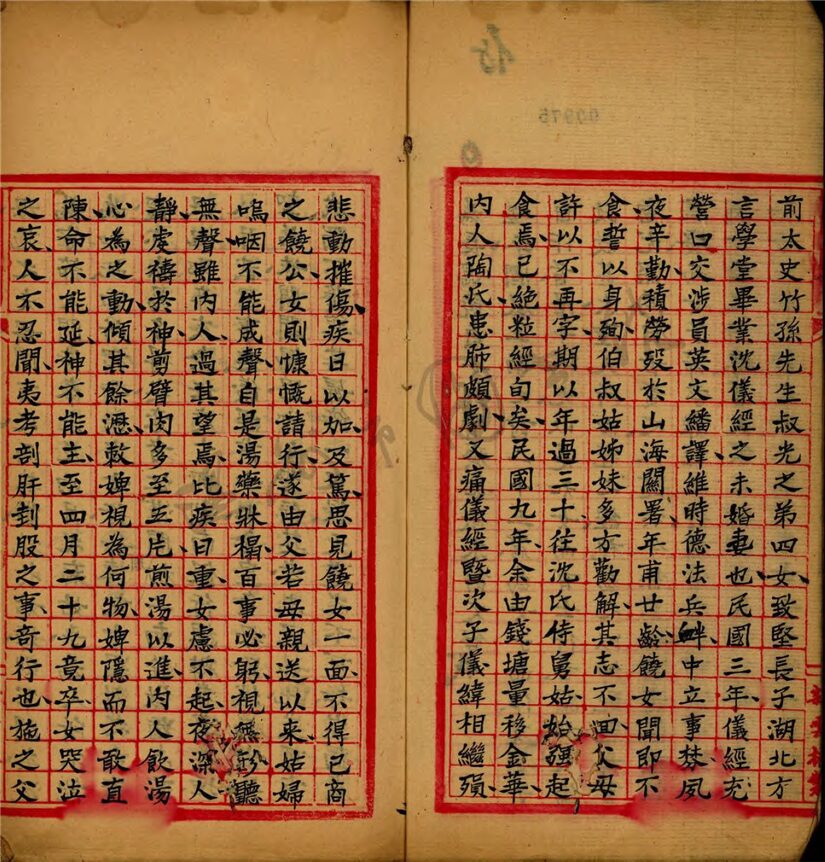 前太史竹孫先生叔光之弟四女、致堅長子湖北方
言學堂畢業沈儀經之未婚妻也、民國三年、儀經充
營口交涉員英文繙譯、維時德法兵衅、中立事棼、夙
夜辛勤、積勞歿於山海關署、年甫廿齡、饒女聞即不
食、誓以身殉、伯叔姑姊妹多方勸解、其志不回、父母
許以不再字、期以年過三十、往沈氏侍舅姑、始強起
食焉、已絶粒經旬矣、民國九年、余由錢塘量移金華、
内人陶氏、患肺頗劇、又痛儀經暨次子儀緯相繼殞、
悲動摧傷、疾日以加、及篤、思見饒女一面、不得已商
之饒公、女則慷慨請行、遂由父若母親送以來、姑婦
嗚咽不能成聲、自是湯藥牀褟、百事必躬、視無形聽
無聲、雖内人過其望焉、比疾日重、女慮不起、夜深人
靜、虔禱於神、剪臂肉多至五片、煎湯以進、内人飲湯
心為之動、傾其餘瀝、敕婢視為何物、婢隱而不敢直
陳、命不能延、神不能主、至四月二十九竟卒、女哭泣
之哀、人不忍聞、夷考剖肝刲股之事、奇行也、施之父